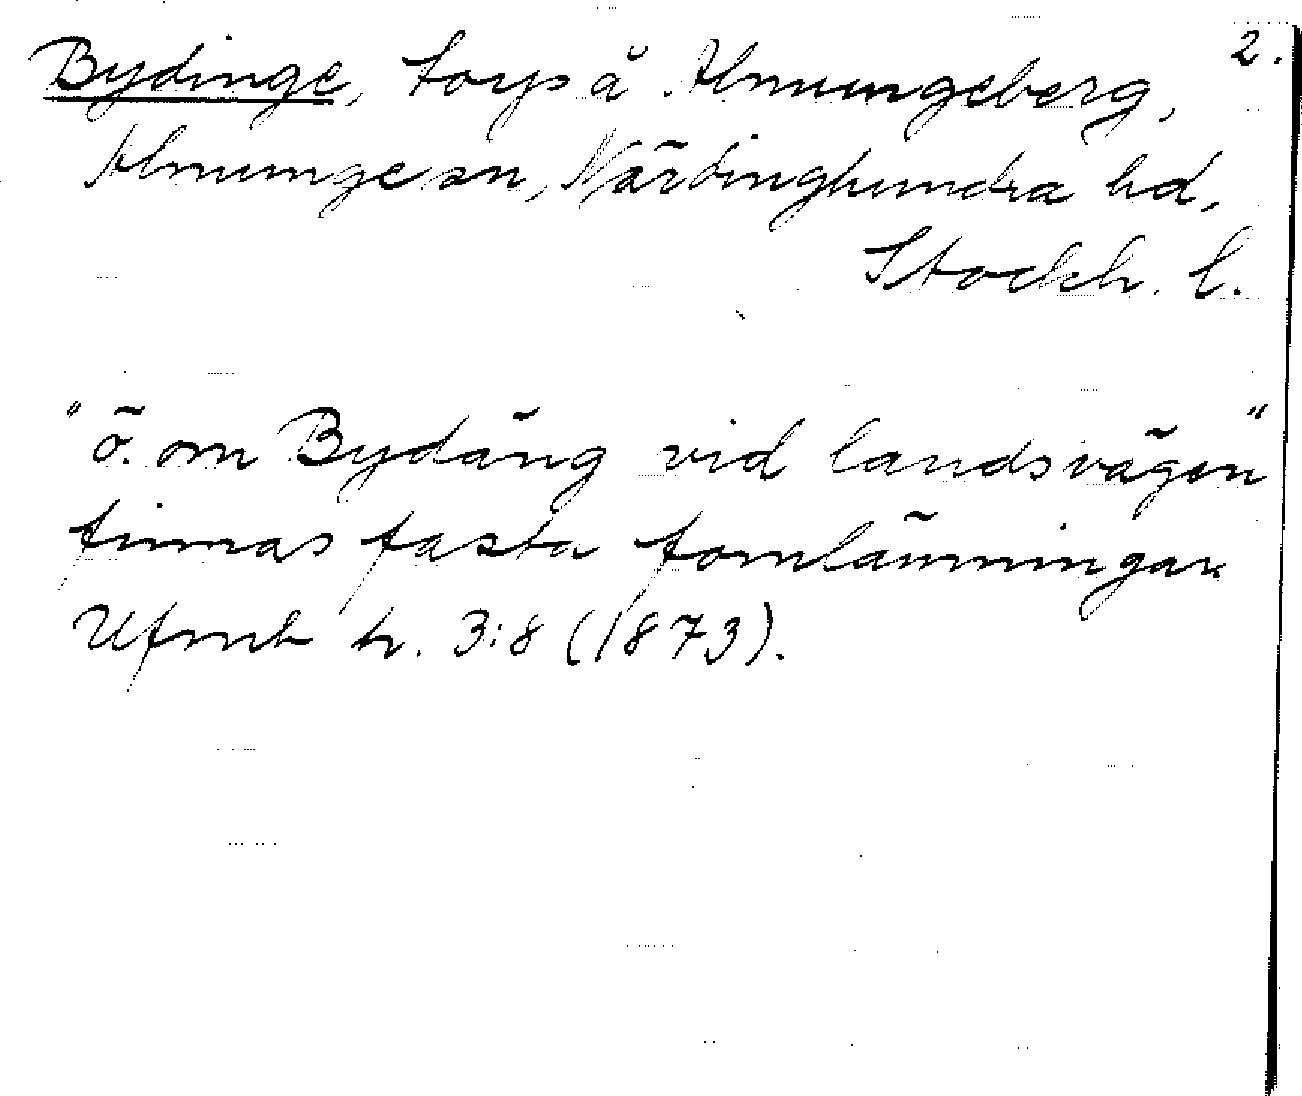 2.
Bydinge, torp å Almungeberg,
Almunge sn, Närdinghundra hd,
Stockh. l.
"ö. om Bydäng vid landsvägen"
finnas fasta fornlämningar.
Ufmt h. 3:8 (1873).